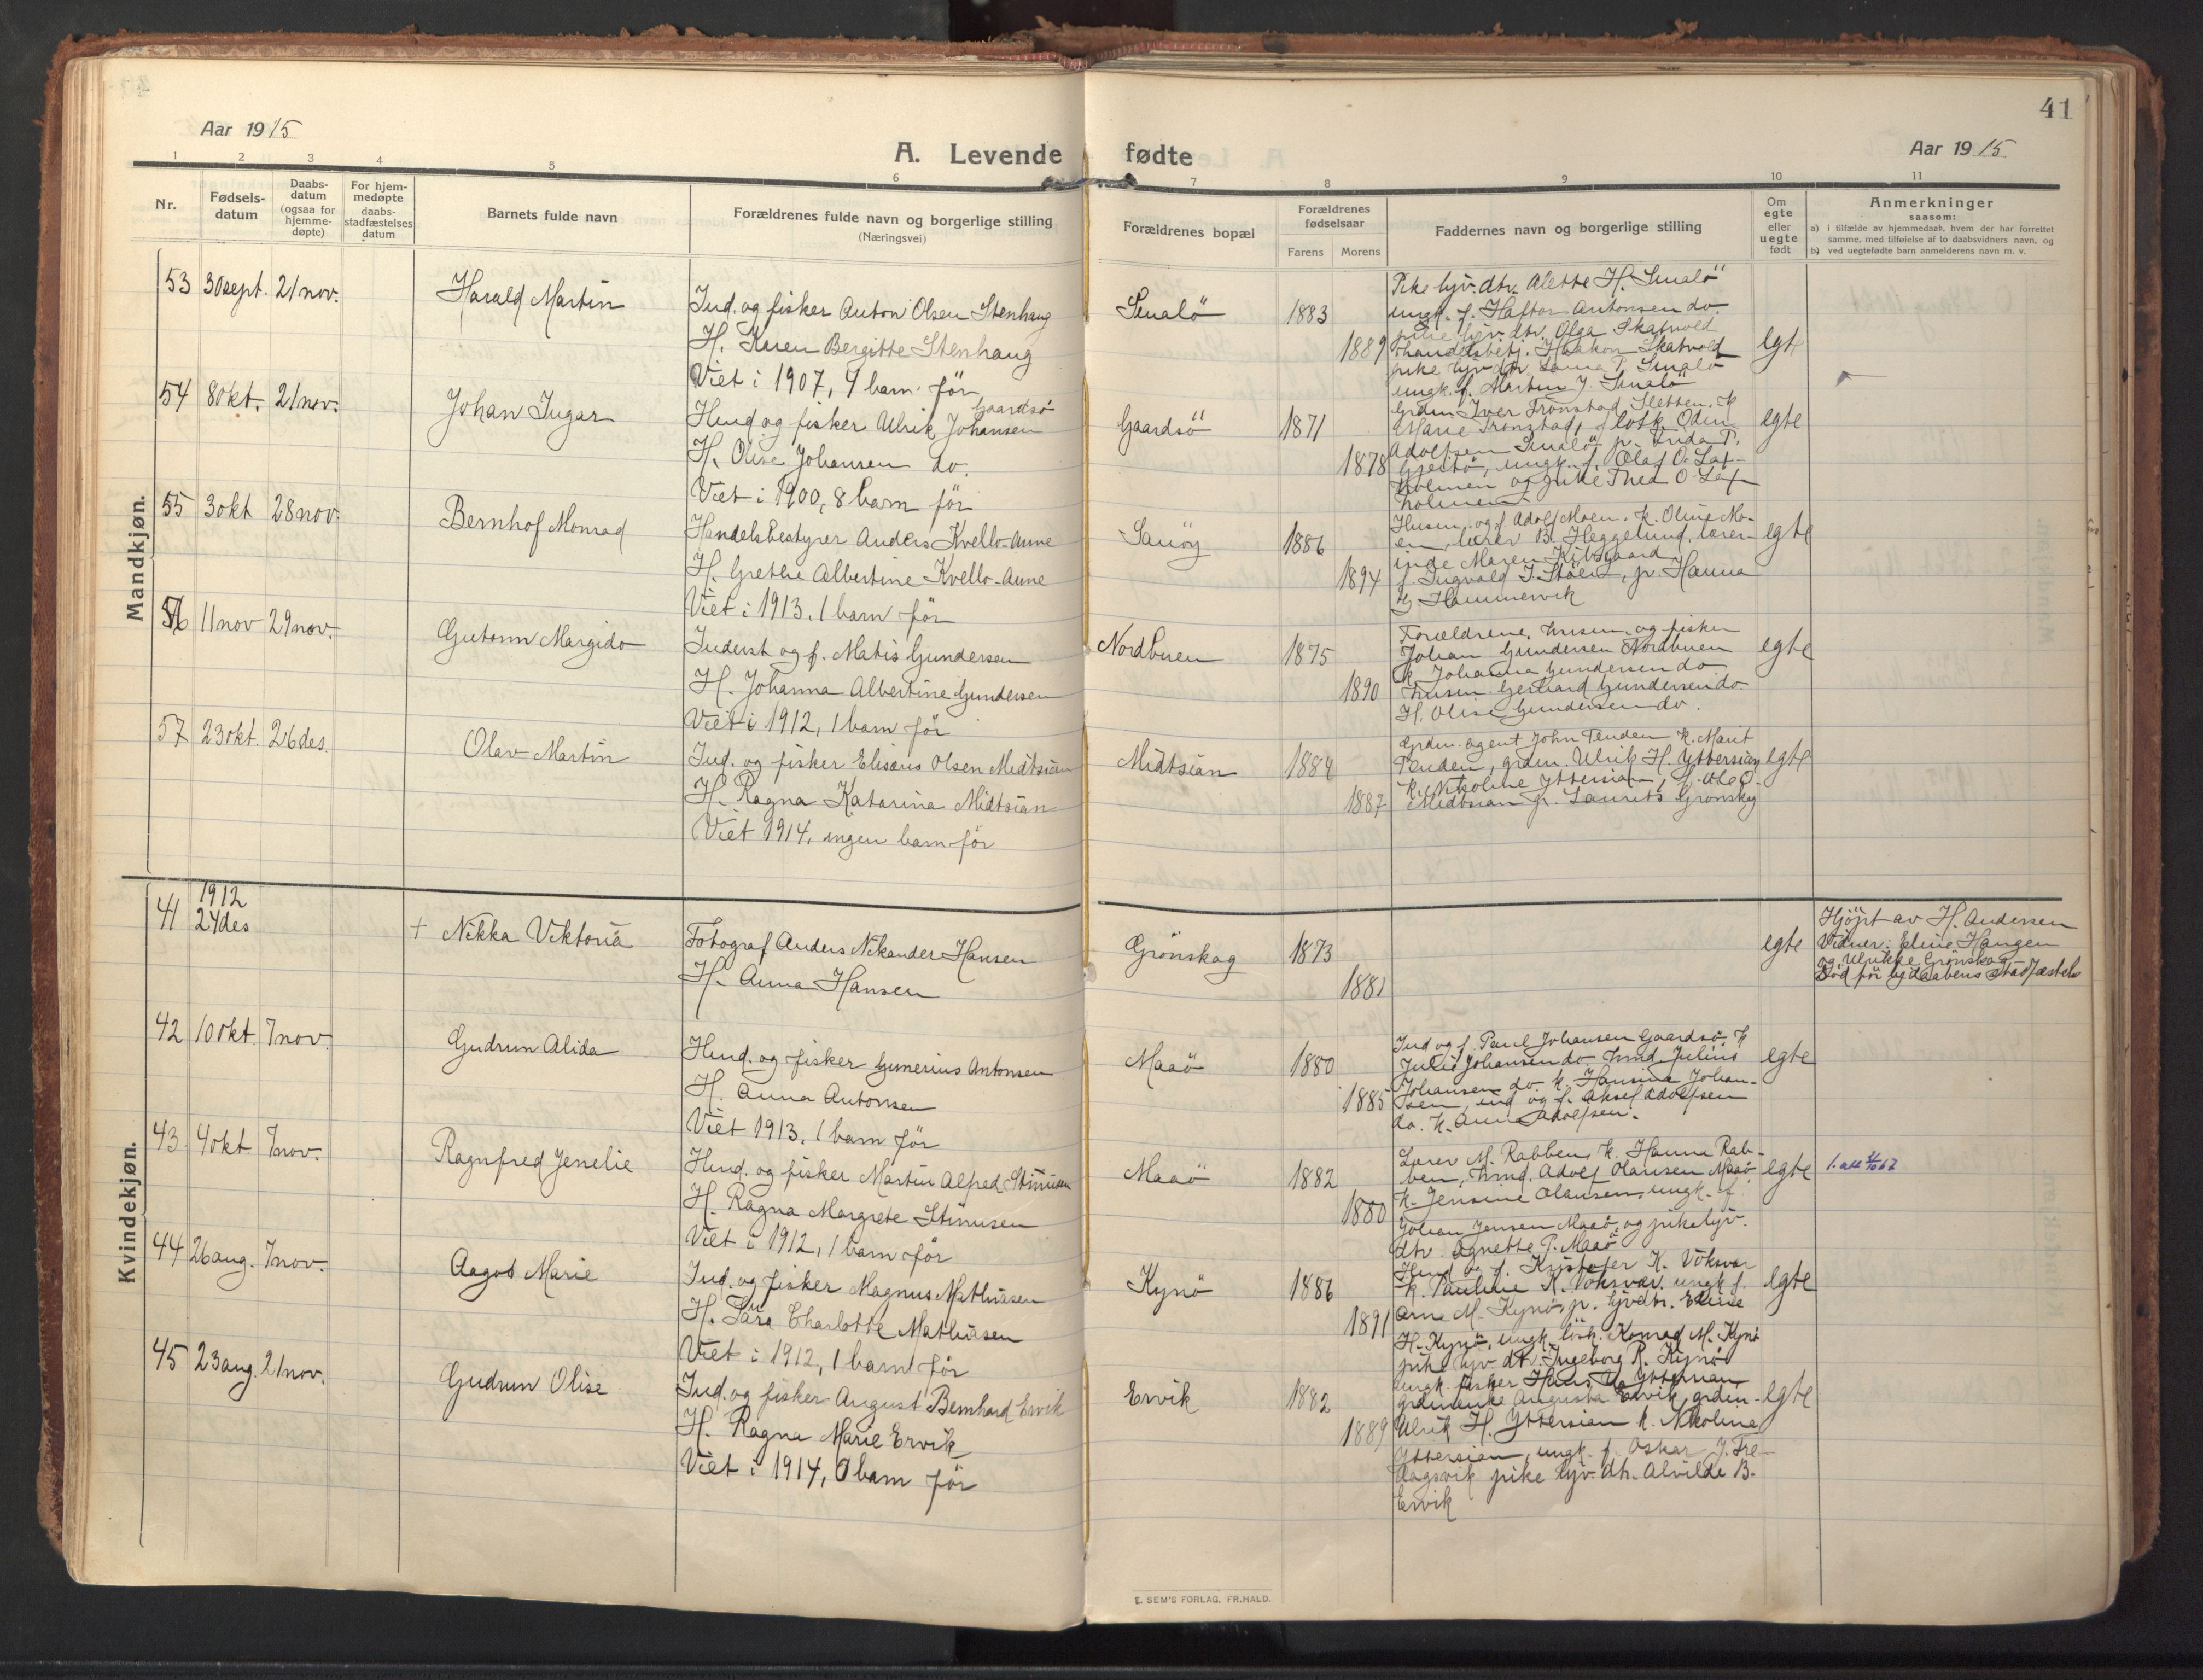 41
Aar 1915
A. Levende fødte
Aar 1915
1 2 3 4 5 6 7 8 9 10 11
Nr.
Fødsels-
datum
Daabs-
datum
(ogsaa for
hjemme-
døpte)
For hjem-
medøpte
daabs-
stadfæstelses
datum
Barnets fulde navn
Forældrenes fulde navn og borgerlige stilling
(Næringsvei)
Forældrenes bopæl
Forældrenes
fødselsaar
Farens Morens
Faddernes navn og borgerlige stilling
Om
egte
eller
uegte
født
Anmerkninger
saasom:
a) i tilfælde av hjemmedaab, hvem der har forrettet
samme, med tilføielse af to daabsvidners navn, og
b) ved uegtefødte barn anmelderens navn m. v.
Mandkjøn.
53 30 sept. 21 nov. Harald Martin
Ind. og fisker Anton Olsen Stenhaug
H. Karen Bergitte Stenhaug
Viet i 1907, 4 barn før
Smalö 1883
1889
Pike hjv. dtr. Alette H. Smalö
ungk. f. Haftor Antonsen do.
pike hjv. dtr. Olga Skatvold
handelsbetj. Haakon Skatvold
pike hjv. dtr. Lovise P. Smalö
ungk. f. Martin J. Smalö
egte
54 8 okt. 21 nov. Johan Ingar
Hmd og fisker Ulrik Johansen Gaardsö
H. Olise Johansen do.
Viet i 1900, 8 barn før
Gaardsö 1871
1878
Grdm. Iver Tronstad Sletten. K
Marie Tronstad, losk. Odin
Adolfsen Smalö p. Frida P.
ungk. f. Olaf O. Lax-
holmen og pike Thea O. Lax-
holmen
egte
55 3 okt 28 nov. Bernhof Monrad
Handelsbestyrer Anders Kvello-Aune
H. Grethe Albertine Kvello-Aune
Viet i 1913. 1 barn før
Sauöy 1886
1894
Husm. og f. Adolf Moen. K. Oline Mo-
en, lærer B. Heggelund, lærer-
inde Maren Kibsgaard
f. Ingvald J. Stölen, p. Hanna
Hammervik
egte
56 11 nov 29 nov. Gutorm Margido
Inderst og f. Matis Gundersen
H. Johanna Albertine Gundersen
Viet i 1912, 1 barn før
Nordbuen 1875
1890
Forældrene. husm. og fisker
Johan Gundersen Nordbuen
K. Johanna Gundersen do
husm. Gerhard Gundersen do.
H. Olise Gundersen do.
egte
57 23 okt. 26 des. Olav Martin
Ind. og fisker Elisæus Olsen Midtsian
H. Ragna Katarina Midtsian
Viet 1914. ingen barn før
Midtsian 1884
1887
Grdm. agent John Tenden K. Marit
Tenden, grdm. Ulrik H. Yttersian
K. Nikoline Yttersian, f. Ole O.
Midtsian p. Laurits Grönskag
egte
Kvindekjøn.
41 1912
24 des + Nikka Viktoria
Fotograf Anders Nikander Hansen
H. Anna Hansen
Grönskag 1873
1881
egte
Hjdpt av H. Andersen
Vidner: Eline Haugen
og Ulrikke Grönskag
Død før hjdaabens stadfæstels
42 10 okt. 7 nov. Gudrun Alida
Hmd. og fisker Gunerius Antonsen
H. Anna Antonsen
Viet 1913. 1 barn før
Maaö 1880
1885
Ind og f. Paul Johansen Gaardsö. K
Julie Johansen do. hmd. Julius
Johansen do. K. Hansine Johan-
sen, ind og f. Aksel Adolfsen
do. K. Anna Adolfsen.
egte
43 4 okt 7 nov. Ragnfred Jenelie
Hmd. og fisker Martin Alfred Stinusen
H. Ragna Margrete Stinusen
Viet i 1912, 1 barn før
Maaö 1882
1880
Lærer M. Rabben, K. Hanna Rab-
ben, hmd. Adolf Olausen Maaö,
K. Jensine Olausen, ungk. f
Johan Jensen Maaö, og pike hjv.
dtr. Agnette P. Maaö
egte
44 26 aug. 7 nov. Aagot Marie
Ind. og fisker Magnus Mathiasen
H. Lära Charlotte Mathiasen
Viet i 1912, 1 barn før
Kynö 1886
1891
Hmd og f. Kristofer K. Voksvær
K. Pauline K. Voksvær, ungk f.
Arne M. Kynö, p. hjvdtr. Eline
H. Kynö, ungk. losk. Konrad M. Kynö
pike hjv dtr. Ingeborg R. Kynö
egte
45 23 aug. 21 nov. Gudrun Olise
Ind. og fisker August Bernhard Ervik
H. Ragna Marie Ervik
Viet i 1914, 0 barn før
Ervik 1882
1889
ungk. fisker Hans U. Yttersian,
grdmenke Augusta Ervik, grdm-
Ulrik H. Yttersian K. Nikoline
Yttersian, ungk. f. Oskar J. Tre-
dagsvik pike hjv. dtr. Alvilde B.
Ervik
egte
E. SEM'S FORLAG, FR.HALD.